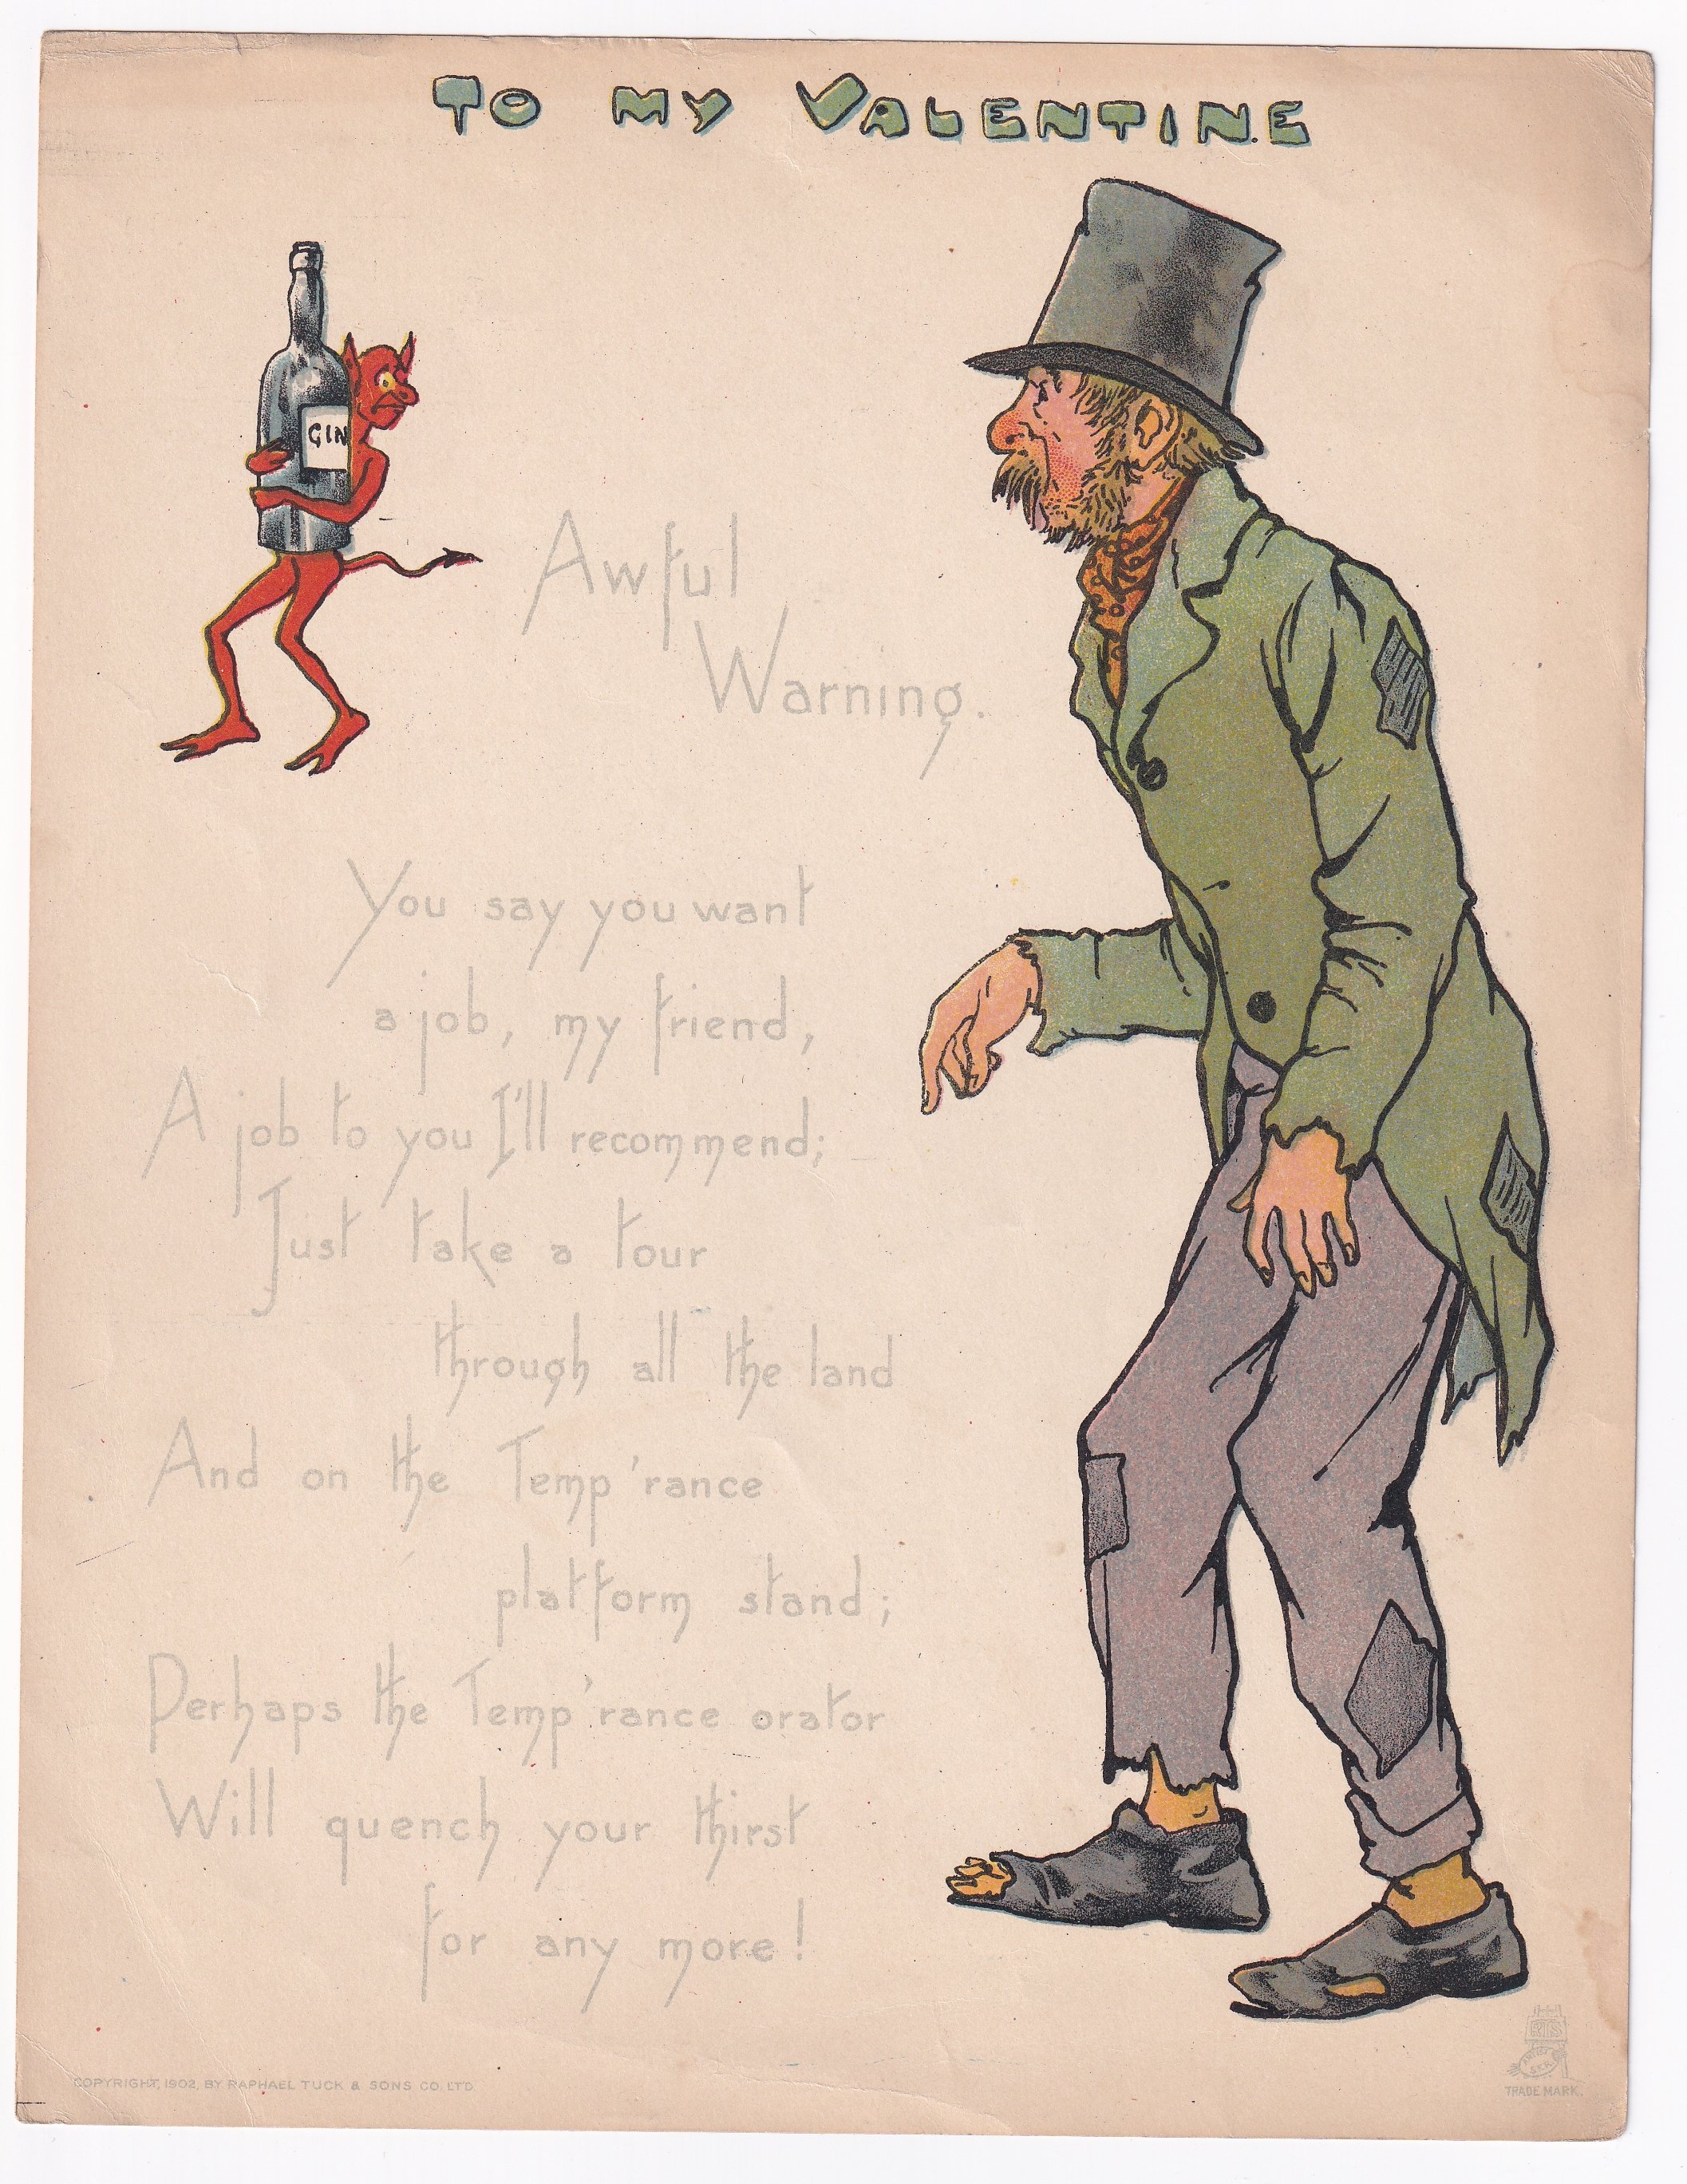 TO MY VALENTINE
GIN
Awful
Warning.
You say you want
a job, my friend,
A job to you I'll recommend;
Just take a tour
through all the land
And on the Temp'rance
platform stand;
Perhaps the Temp'rance orator
Will quench your thirst
for any more!
COPYRIGHT, 1902, BY RAPHAEL TUCK & SONS CO. LTD.
RTS
TRADE MARK.